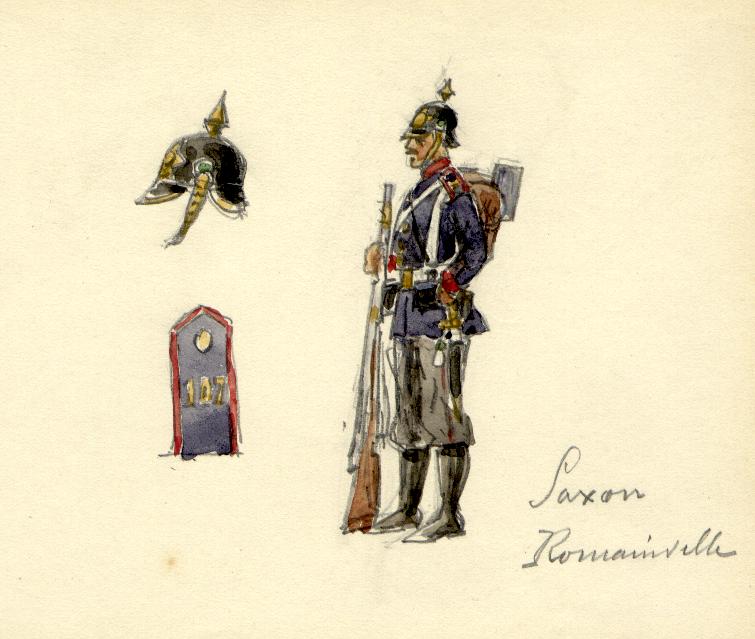 107
Saxon
Romainville